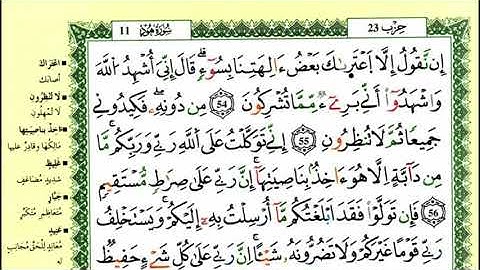 حِزْب 23
سُورَةُ هُودٍ 11
إِن نَّقُولُ إِلَّا اَعْتَرٰىكَ بَعْضُ ءَالِهَتِنَا بِسُوٓءٍ قَالَ إِنِّيَ أُشْهِدُ اُللَّهَ
وَاشْهَدُوٓاْ أَنِّي بَرِےٓءٌ مِّمَّا تُشْرِكُونَ 54 مِن دُونِهِۦ فَكِيدُونِي
جَمِيعاً ثُمَّ لَا تُنظِرُونِ 55 إِنِّي تَوَكَّلْتُ عَلَى اَللَّهِ رَبِّي وَرَبِّكُم مَّا
مِن دَآبَّةٍ اِلَّا هُوَ ءَاخِذُۢ بِنَاصِيَتِهَآ إِنَّ رَبِّي عَلَىٰ صِرَٰطٍ مُّسْتَقِيمٍ
56 فَإِن تَوَلَّوْاْ فَقَدَ اَبْلَغْتُكُم مَّآ أُرْسِلْتُ بِهِۦٓ إِلَيْكُمْ وَيَسْتَخْلِفُ
رَبِّي قَوْماً غَيْرَكُمْ وَلَا تَضُرُّونَهُۥ شَيْـٔاً إِنَّ رَبِّي عَلَىٰ كُلِّ شَےْءٍ حَفِيظٌ
اعْتَرَاكَ
أصابك
لَا تُنْظِرُونِ
لا تمهلون
آخِذٌ بِنَاصِيَتِهَا
مالكها وقادر عليها
غَلِيظٍ
شديد مضاعف
جَبَّارٍ
متعاظم متكبّر
عَنِيدٍ
معاند للحق مجانب
له